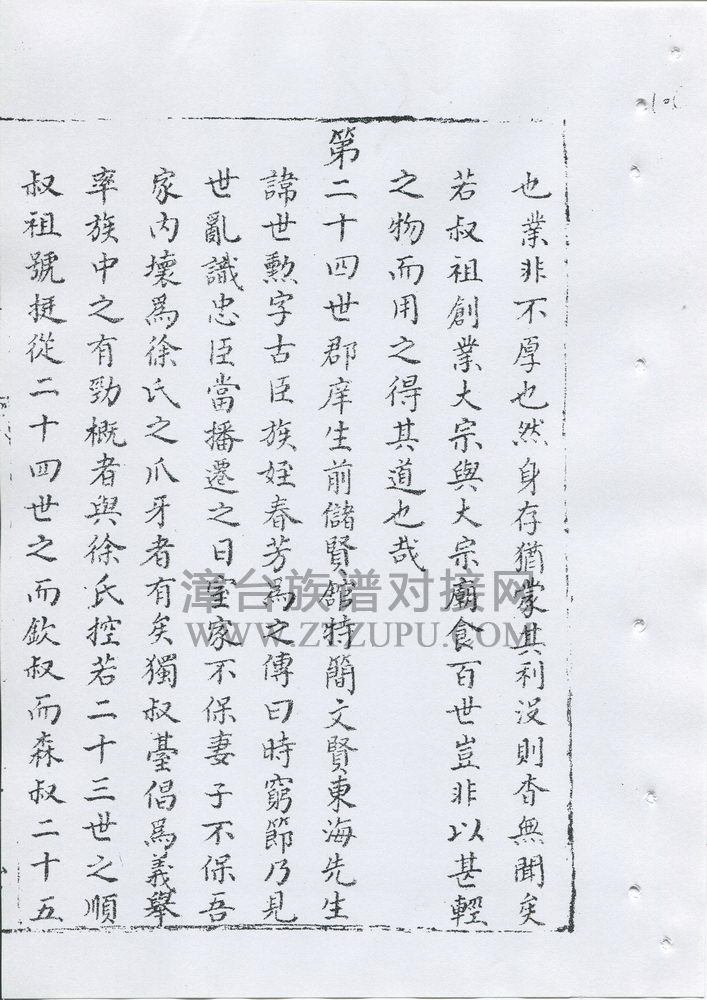 也業非不厚也然身存猶蒙其利沒則杳無聞矣
若叔祖創業大宗與大宗廟食百世豈非以甚輕
之物而用之得其道也哉
第二十四世郡庠生前儲賢舘特簡文賢東海先生
諱世勳字古臣族姪春芳為之傳曰時窮節乃見
世亂識忠臣當播遷之日室家不保妻子不保吾
家內壞爲徐氏之爪牙者有矣獨叔臺倡爲義舉
率族中之有勁概者與徐氏控若二十三世之順
叔祖號挺從二十四世之而欽叔而森叔二十五
漳台族谱对接网
WWW.ZTZUPU.COM